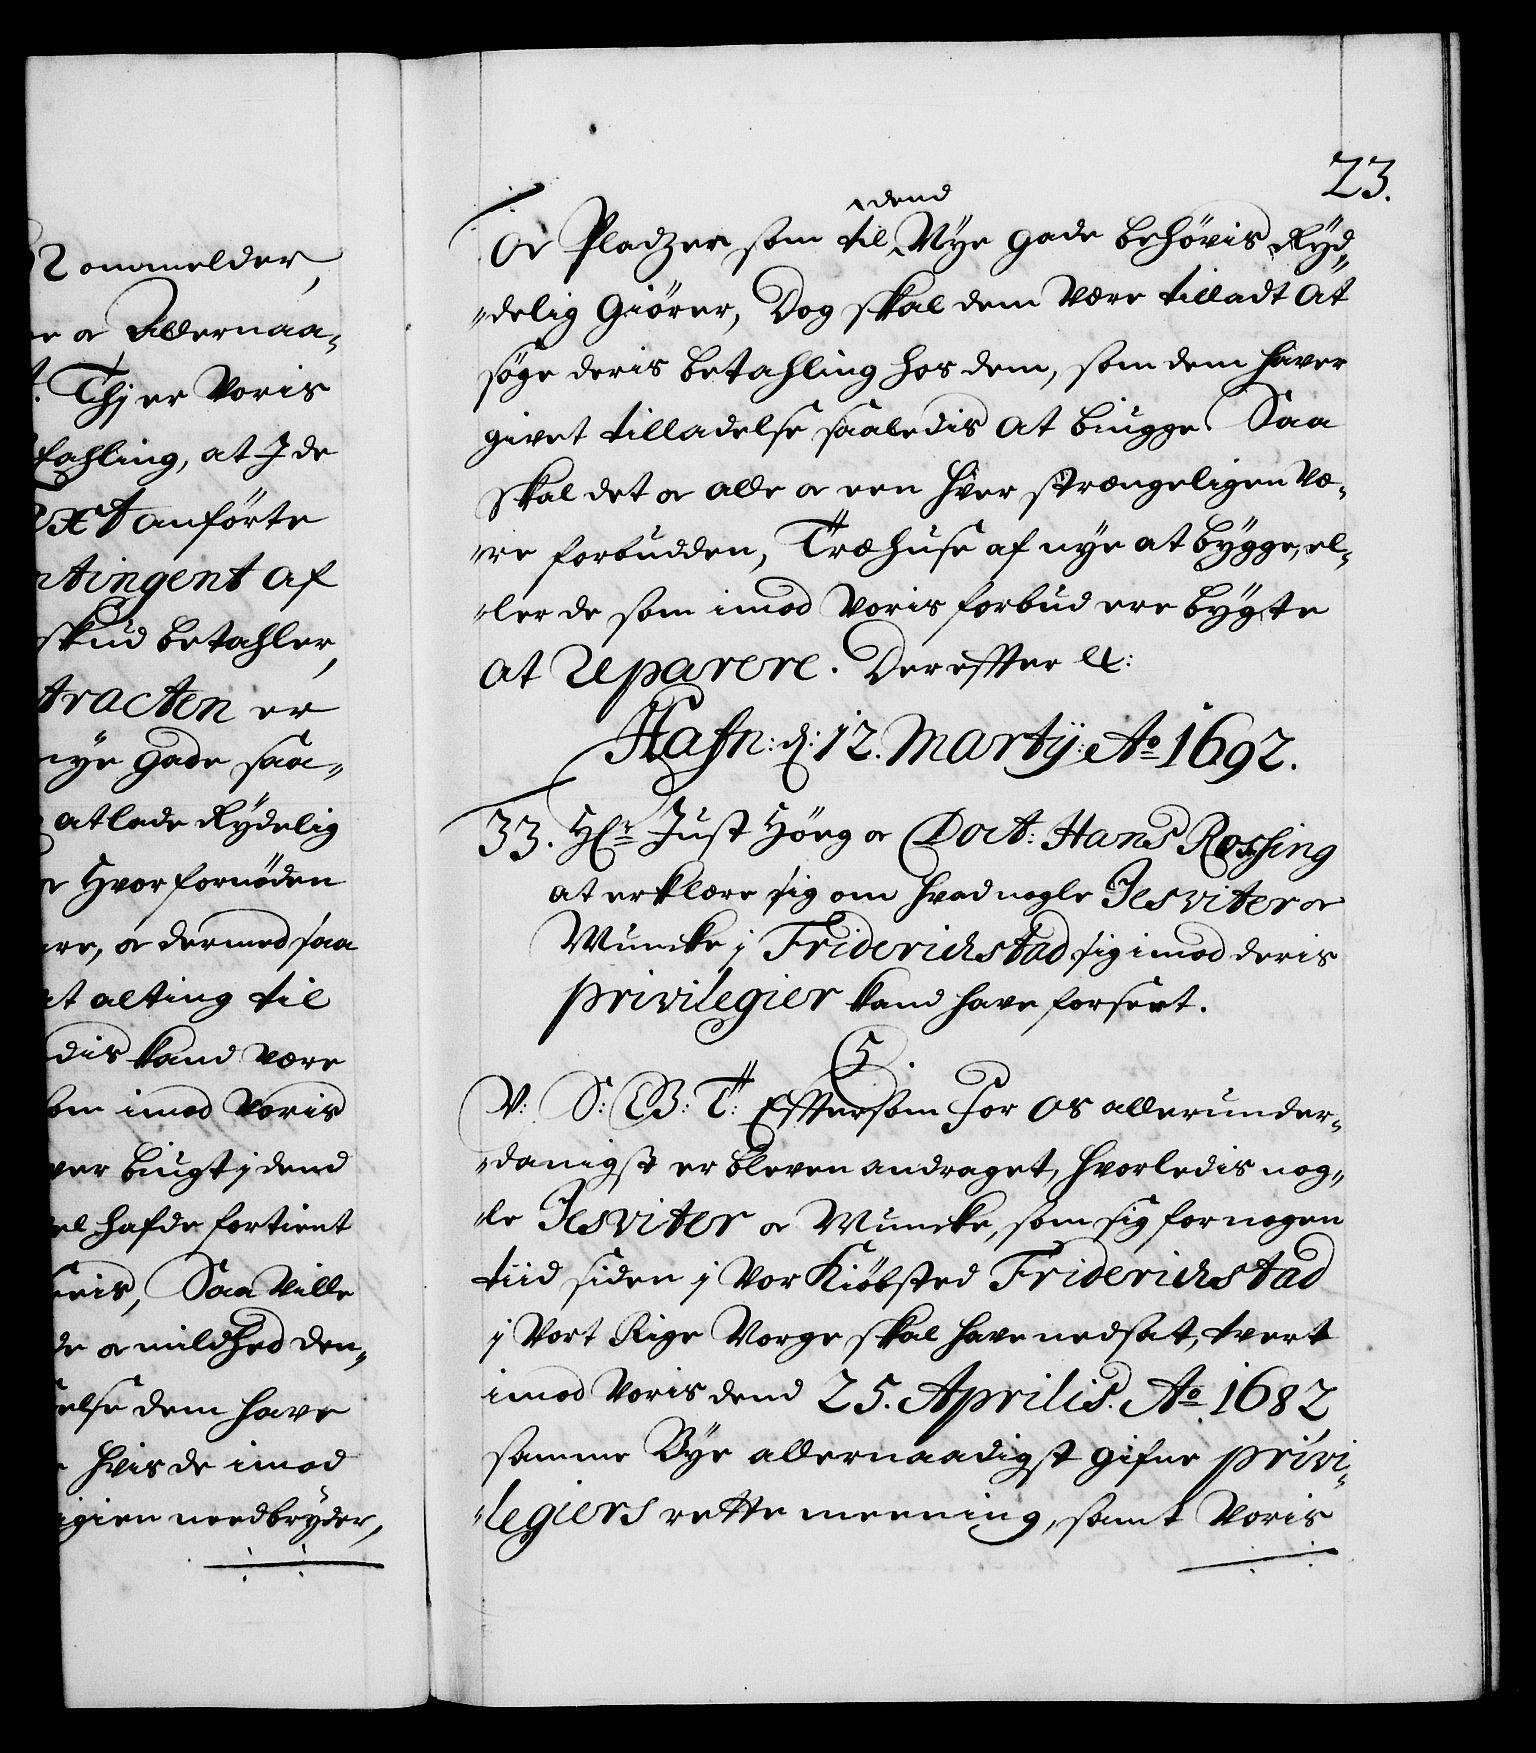 ommelder,
e oc Allernaa-
t. Thj er Voris
fahling, at I de
anförte
ntingent af
skud betahler,
tracten er
nye gade saa-
at lade Rÿdelig
Hvor fornöden
re, oc dermed saa
at alting til
dis kand være
som imod Voris
ver biugt i dend
el hafde fortient
eris, Saa Ville
de oc mildhed den,
else dem have
hvis de imod
igien needbrÿder,
23.
dend
Oc Pladzer som til Nÿe gade behövis Rÿd-
delig Giörer, Dog skal dem være tilladt at
söge deris betahling hos dem, som dem haver
givet tilladelse saaledis at biugge Saa
skal det oc alle oc een hver strengeligen væ-
re forbudden, Træhuse af nÿe at bÿgge, el-
ler de som imod Voris forbud ere bÿgte
at Reparere. Dereffter &:
Hafn: d: 12. Martij: Ao 1692.
33. Hr Just Höeg oc Doct: Hans Rossing
at erklære sig om hvad nogle Jesviter oc
Muncke i Friderichstad sig imod deris
privilegier kand have forseet.
5
V: S: G: T: Efftersom For Os allerunder-
danigst er bleven andraget, hvorledis nog-
le Jesviter oc Muncke, som sig for nogen
tiid siden i Vor Kiöbsted Friderichstad
i Vort Rige Norge skal have nedsat, tvert
imod Voris dend 25. Aprilis. Ao 1682
samme Bÿe allernaadigst gifne privi-
legiers rette meening, samt Voris